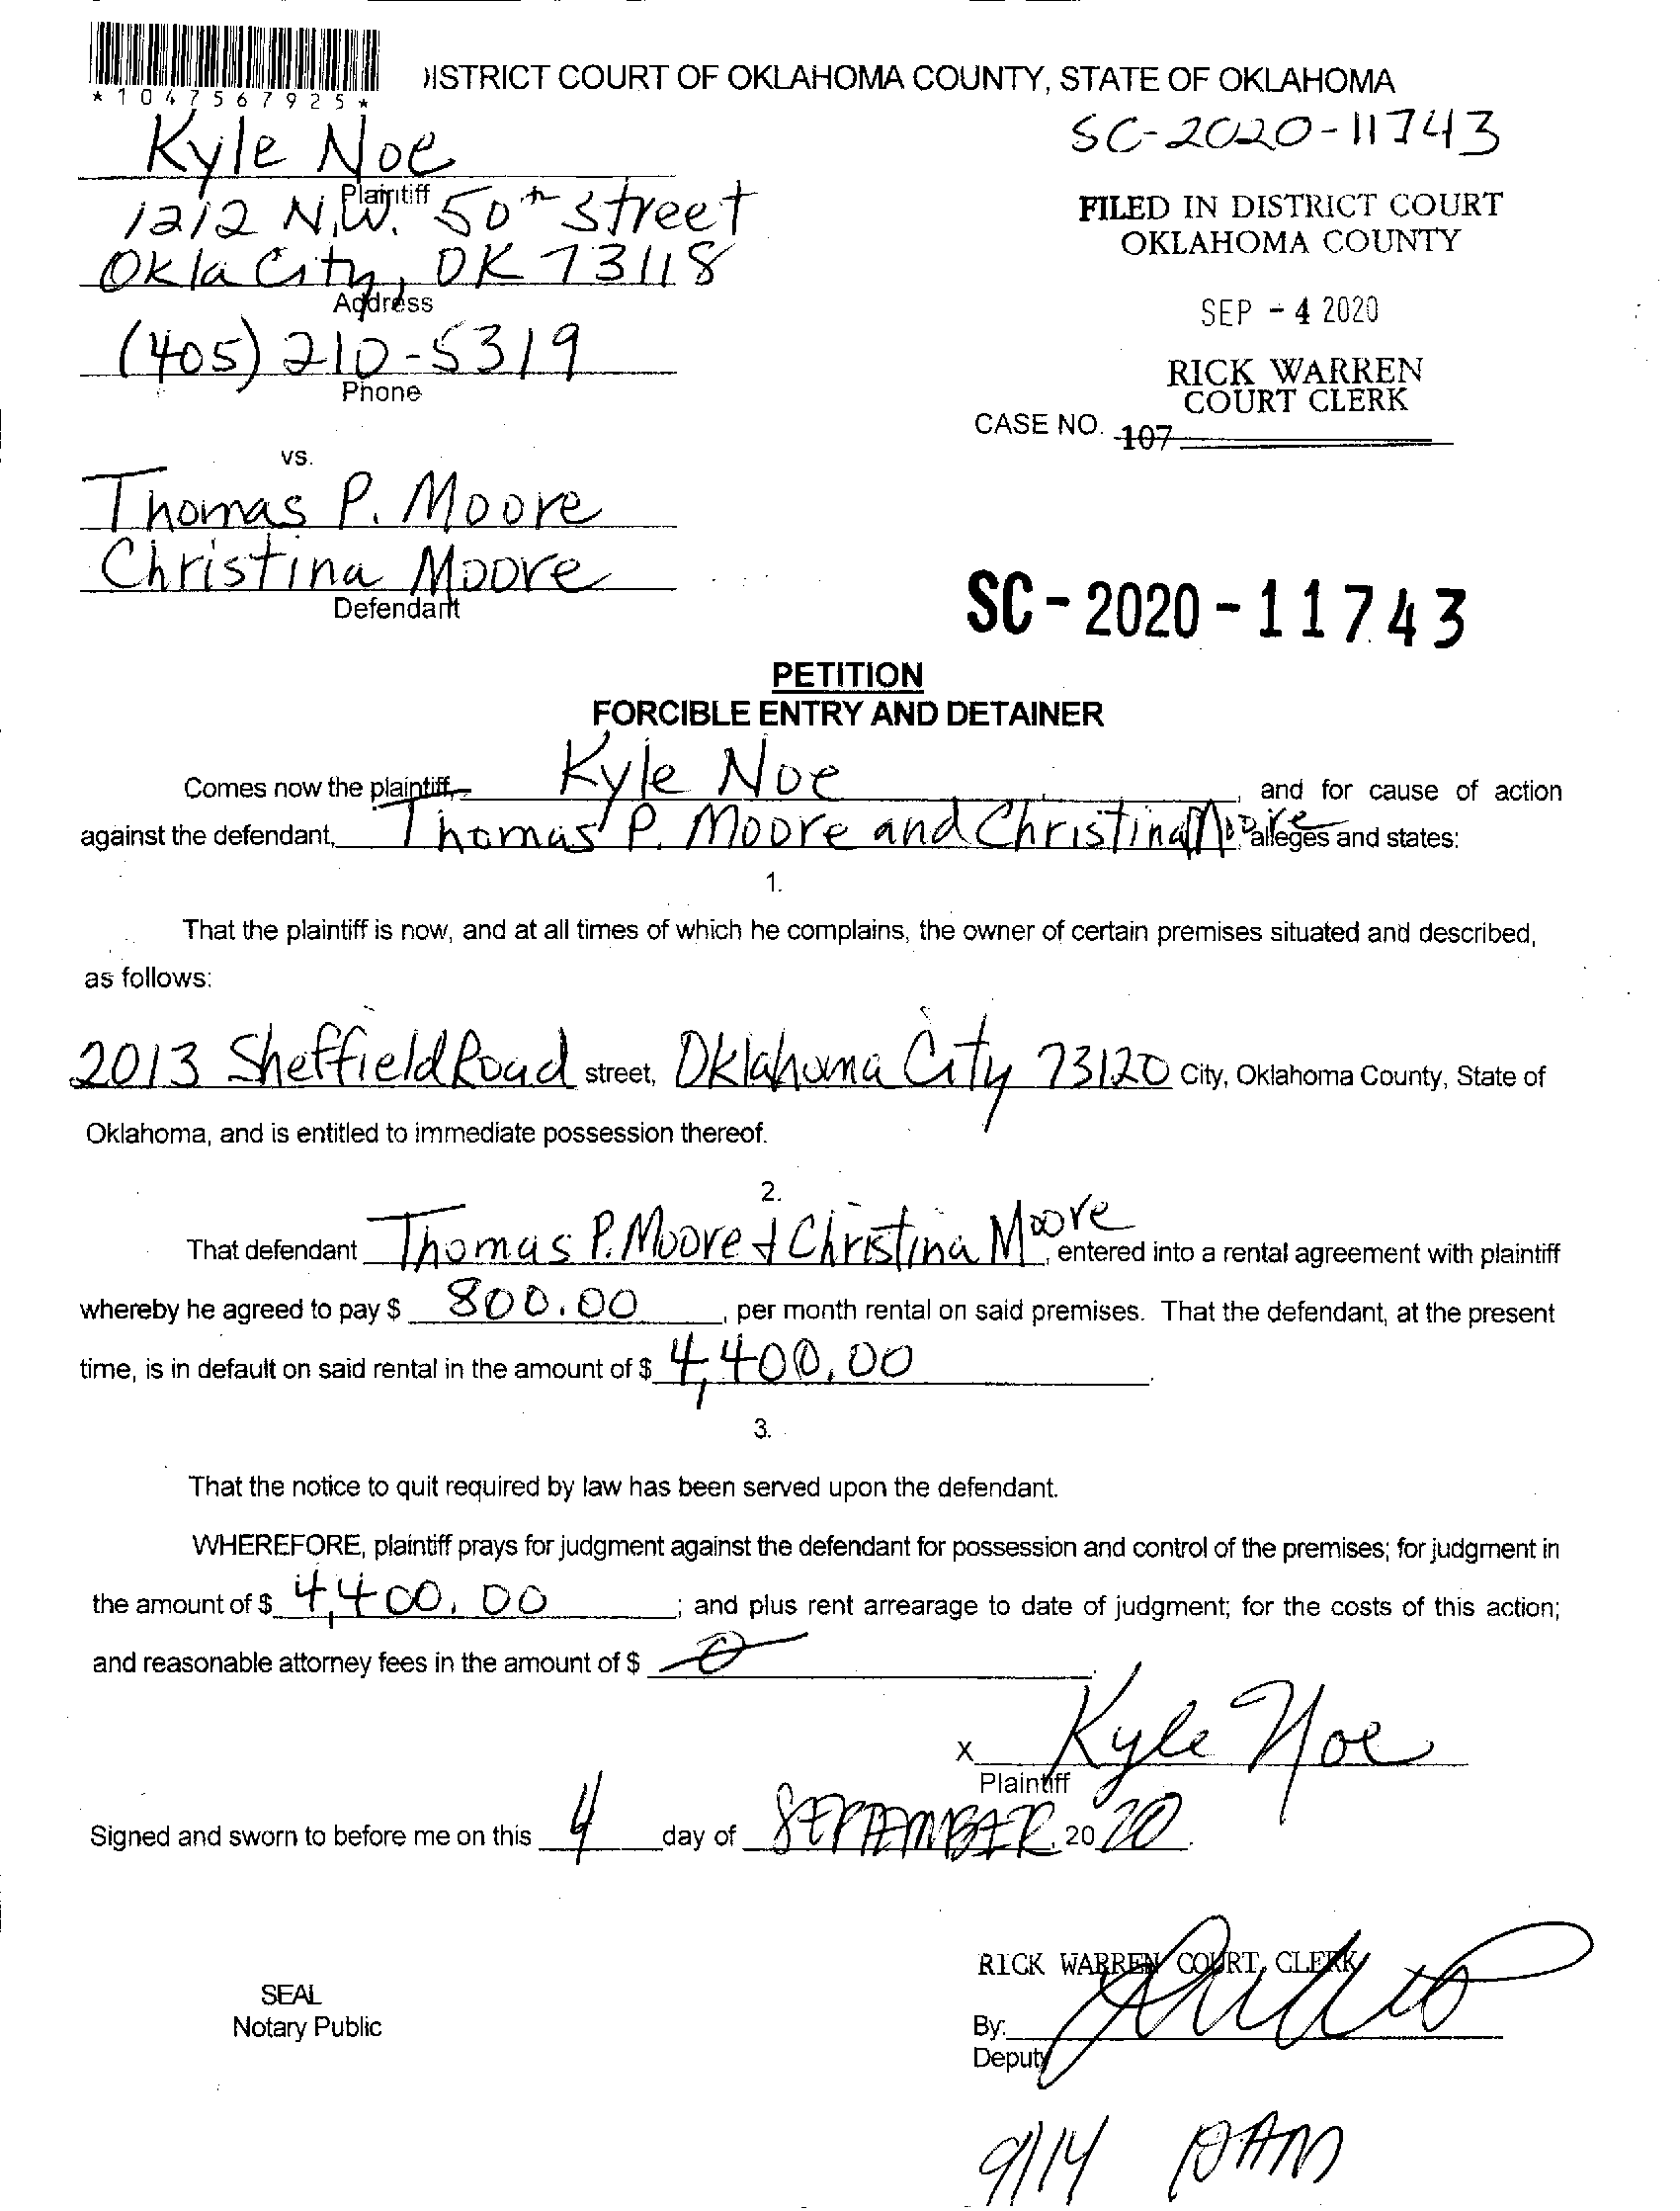 *1047567925*
ISTRICT COURT OF OKLAHOMA COUNTY, STATE OF OKLAHOMA
SC-2020-11743
Kyle Noe
Plaintiff
1212 N.W. 50th Street
Okla City, OK 73118
Address
(405) 210-5319
Phone
FILED IN DISTRICT COURT
OKLAHOMA COUNTY
SEP - 4 2020
RICK WARREN
COURT CLERK
CASE NO. 107
vs.
Thomas P. Moore
Christina Moore
Defendant
SC-2020-11743
PETITION
FORCIBLE ENTRY AND DETAINER
Comes now the plaintiff, Kyle Noe, and for cause of action
against the defendant, Thomas P. Moore and Christina Moore, alleges and states:
1.
That the plaintiff is now, and at all times of which he complains, the owner of certain premises situated and described,
as follows:
2013 Sheffield Road street, Oklahoma City 73120 City, Oklahoma County, State of
Oklahoma, and is entitled to immediate possession thereof.
2.
That defendant Thomas P. Moore + Christina Moore, entered into a rental agreement with plaintiff
whereby he agreed to pay $ 800.00, per month rental on said premises. That the defendant, at the present
time, is in default on said rental in the amount of $ 4,400.00.
3.
That the notice to quit required by law has been served upon the defendant.
WHEREFORE, plaintiff prays for judgment against the defendant for possession and control of the premises; for judgment in
the amount of $ 4,400.00; and plus rent arrearage to date of judgment; for the costs of this action;
and reasonable attorney fees in the amount of $ 0.
X Kyle Noe
Plaintiff
Signed and sworn to before me on this 4 day of SEPTEMBER, 2020.
RICK WARREN COURT CLERK
SEAL
Notary Public
By:
Deputy
9/14